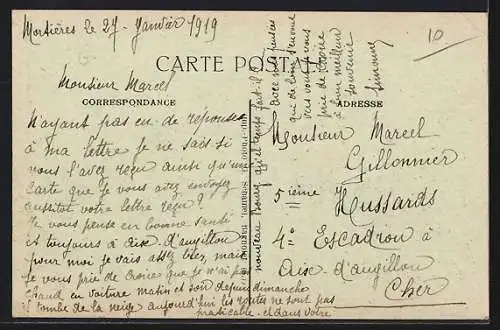 Mortières le 27 Janvier 1919
10
CARTE POSTALE
CORRESPONDANCE
ADRESSE
Monsieur Marcel
N'ayant pas eu de réponses
à ma lettre je ne sais si
vous l'avez reçu ainsi qu'une
Carte que je vous avez envoyez
aussitôt votre lettre reçu ?
Je vous pense en bonne santé
et toujours à Aix-d'augillon
pour moi je vais assez bien, mais
je vous prie de croire que je n'ai pas
chaud en voiture matin et soir depuis dimanche
il tombe de la neige aujourd'hui les routes ne sont pas
praticable et dans votre
nouveau Bourg quel temps fait-il
avec mes pensées
qui de loin
vers vous
prie de croire
à leur meilleur
souvenir
Simonne
Monsieur Marcel
Gillonnier
5 ième Hussards
4e Escadron à
Aix-d'augillon
Cher